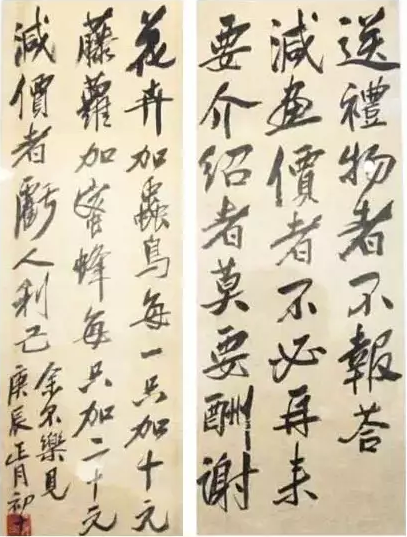 送禮物者不報荅
減画價者不必再来
要介紹者莫要酬謝
花卉加蟲鳥每一只加十元
藤蘿加蜜蜂每只加二十元
減價者虧人利己
余不樂見
庚辰正月初十